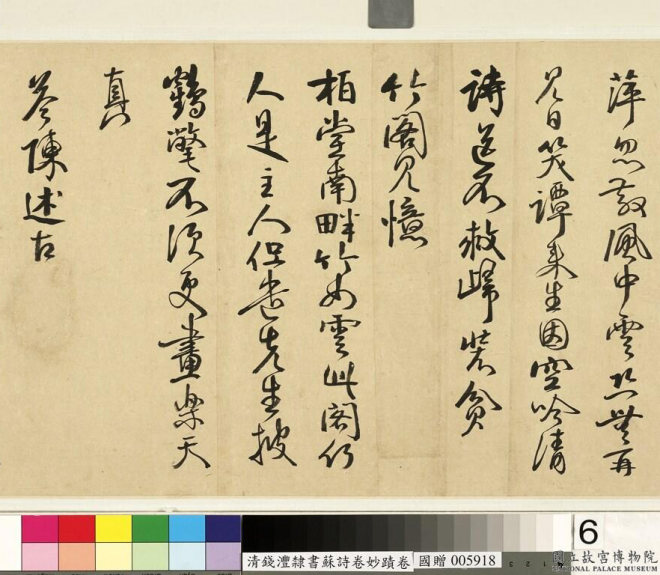 萍忽散風中雲恐無再
見日笑譚來生因空吟清
詩送不救歸裝貧
竹閣見憶
柏堂南畔竹如雲此閣何
人是主人但遣先生披
鶴氅不須更畫樂天
真
答陳述古
清錢灃隸書蘇詩卷妙蹟卷 國贈 005918
6
國立故宮博物院
NATIONAL PALACE MUSEUM